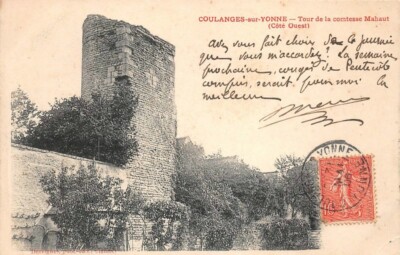 COULANGES-sur-YONNE — Tour de la comtesse Mahaut
(Côté Ouest)
Avez vous fait choix de la journée
que vous m'accordez ? La semaine
prochaine, congés de Pentecôte
compris, serait pour moi la
meilleure
YONNE